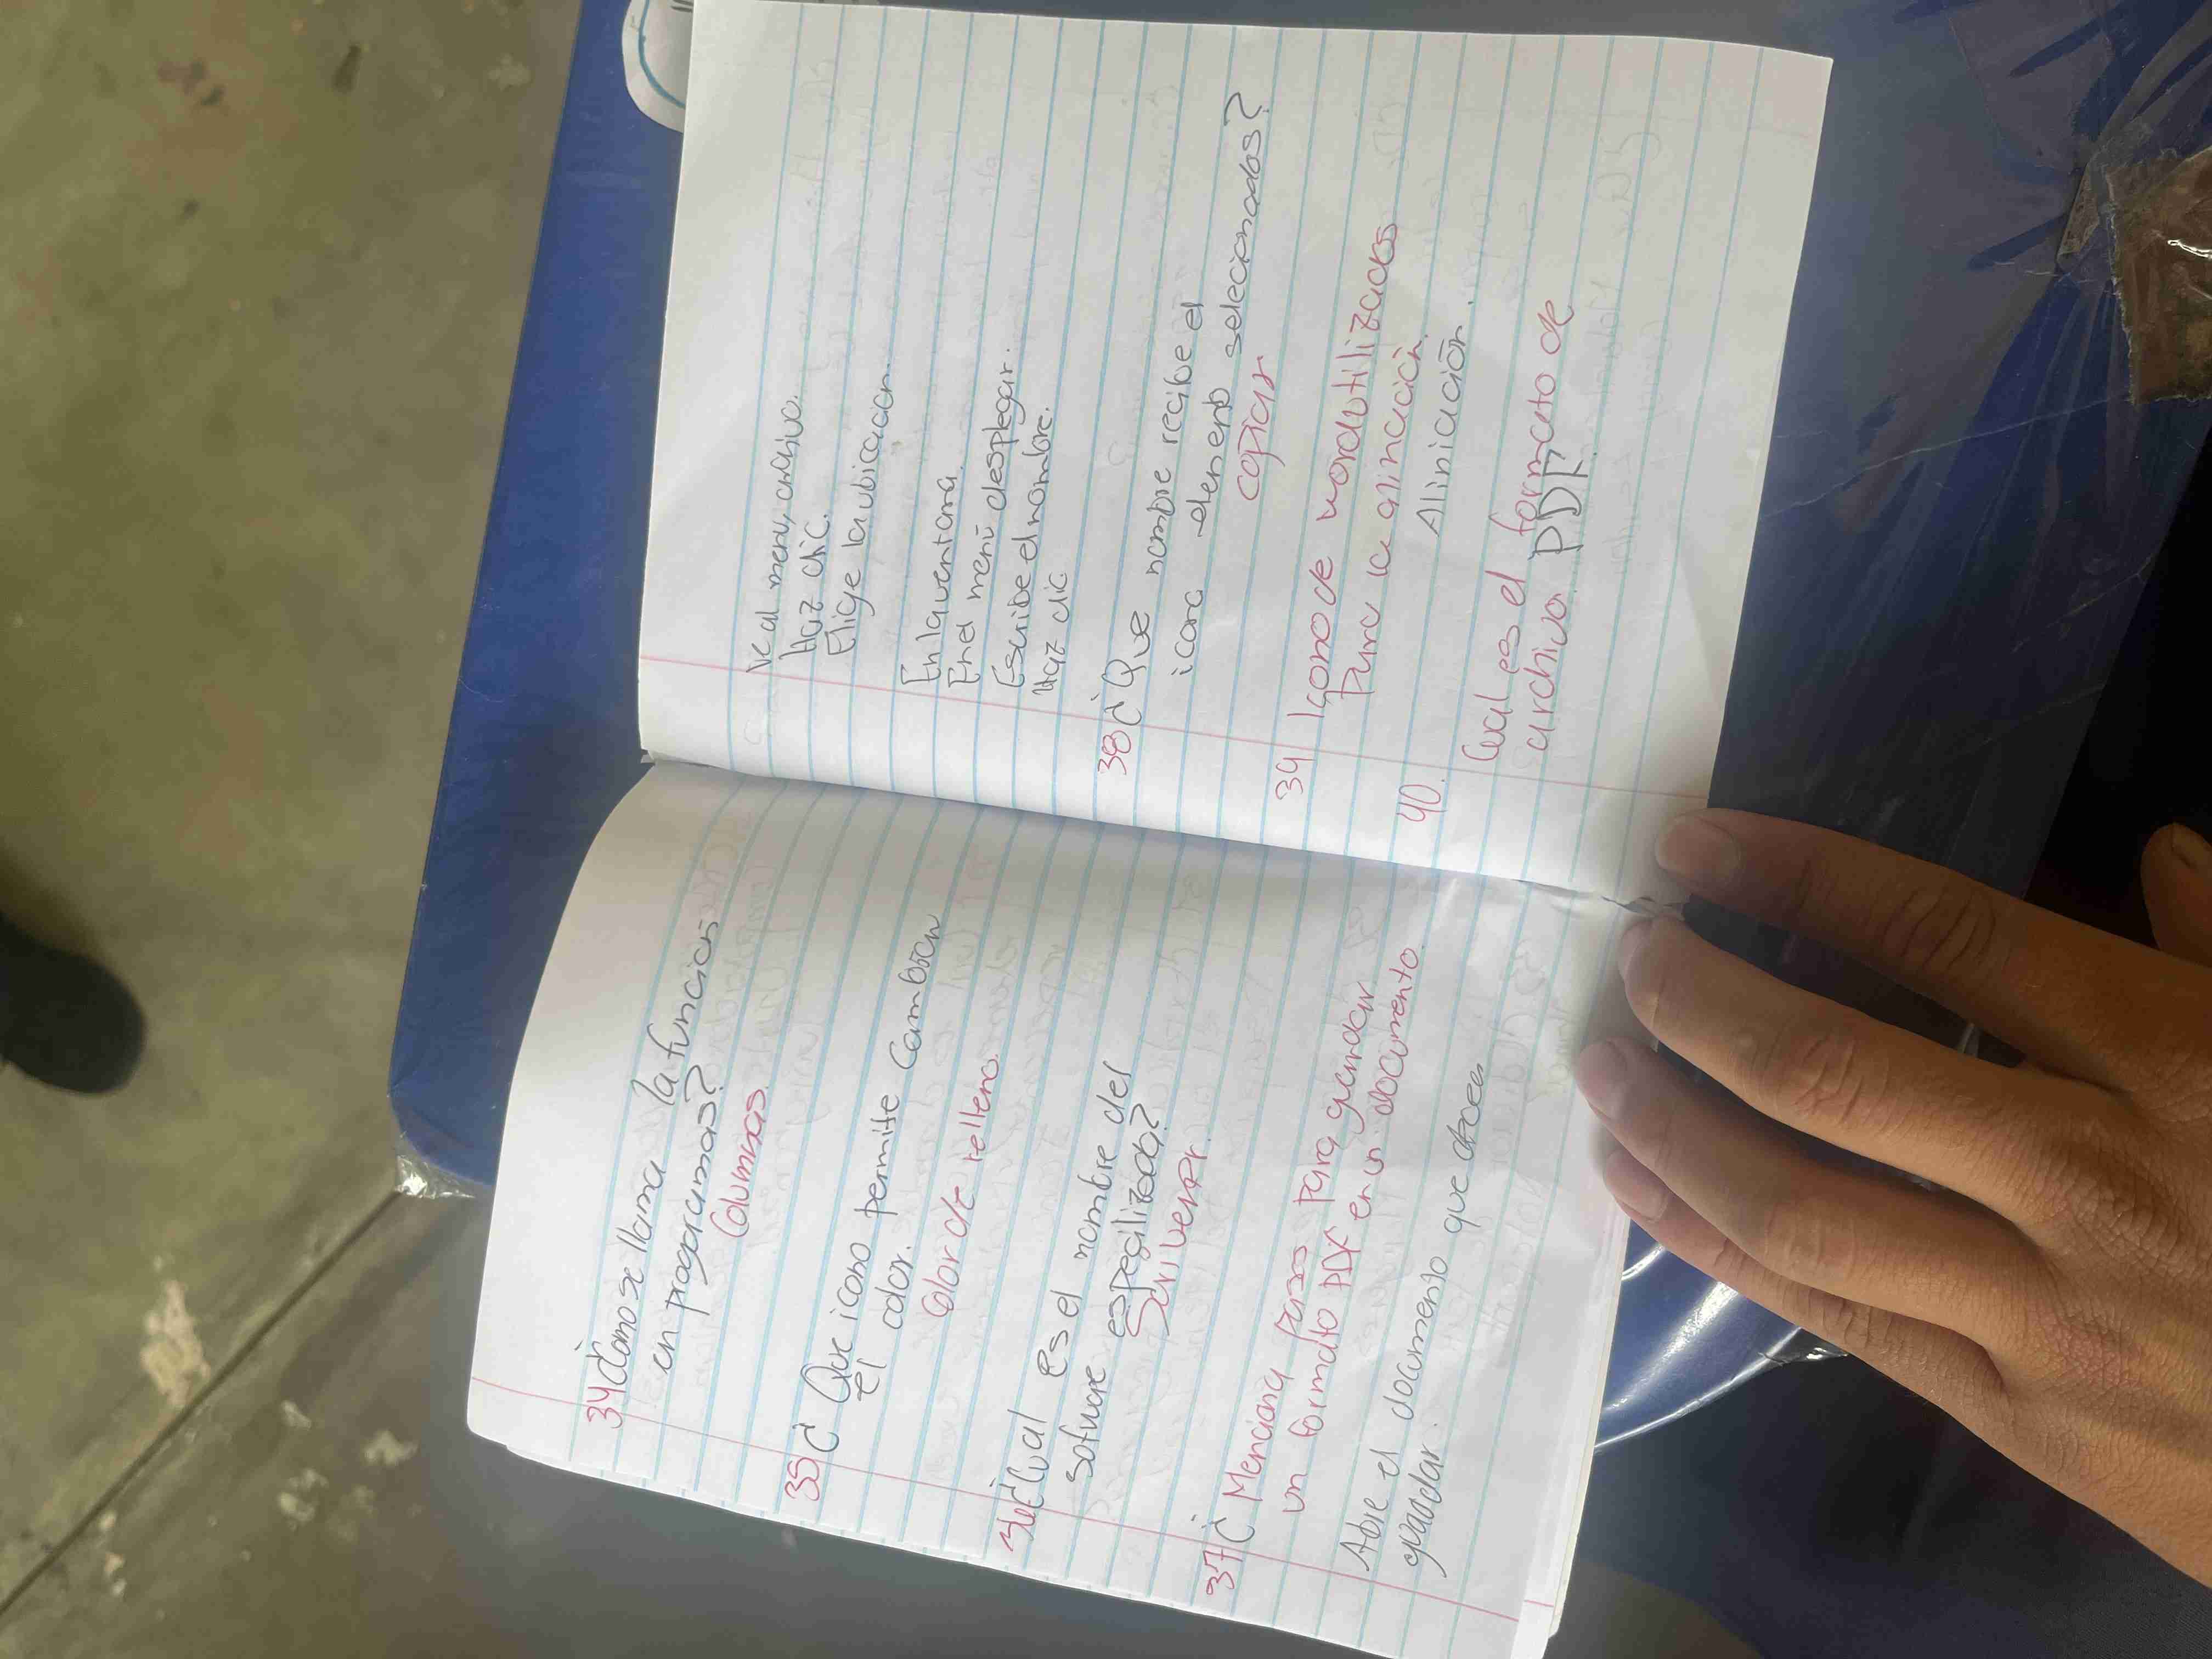 34 ¿Como se llama la función
en programas?
Columnas.
35 ¿ Que icono permite Cambiar
El color.
Color de relleno.
36 ¿Cual es el nombre del
sofware espegilizado?
Scrivener.
37 ¿ Menciona pasos para guardar
un formato PDF en un documento.
Abre el documento que
guardar.
Ve al menu, archivo.
Haz clic.
Elige la ubicacion.
En la ventana.
En el menú desplegar.
Escribe el nombre.
Haz clic
38 ¿Que nombre recibe el
icono elemento selecionados?
copiar
39 Icono de word utilizados
Para la alinación.
Aliniación.
40. Cual es el formato de
archivo. PDF.